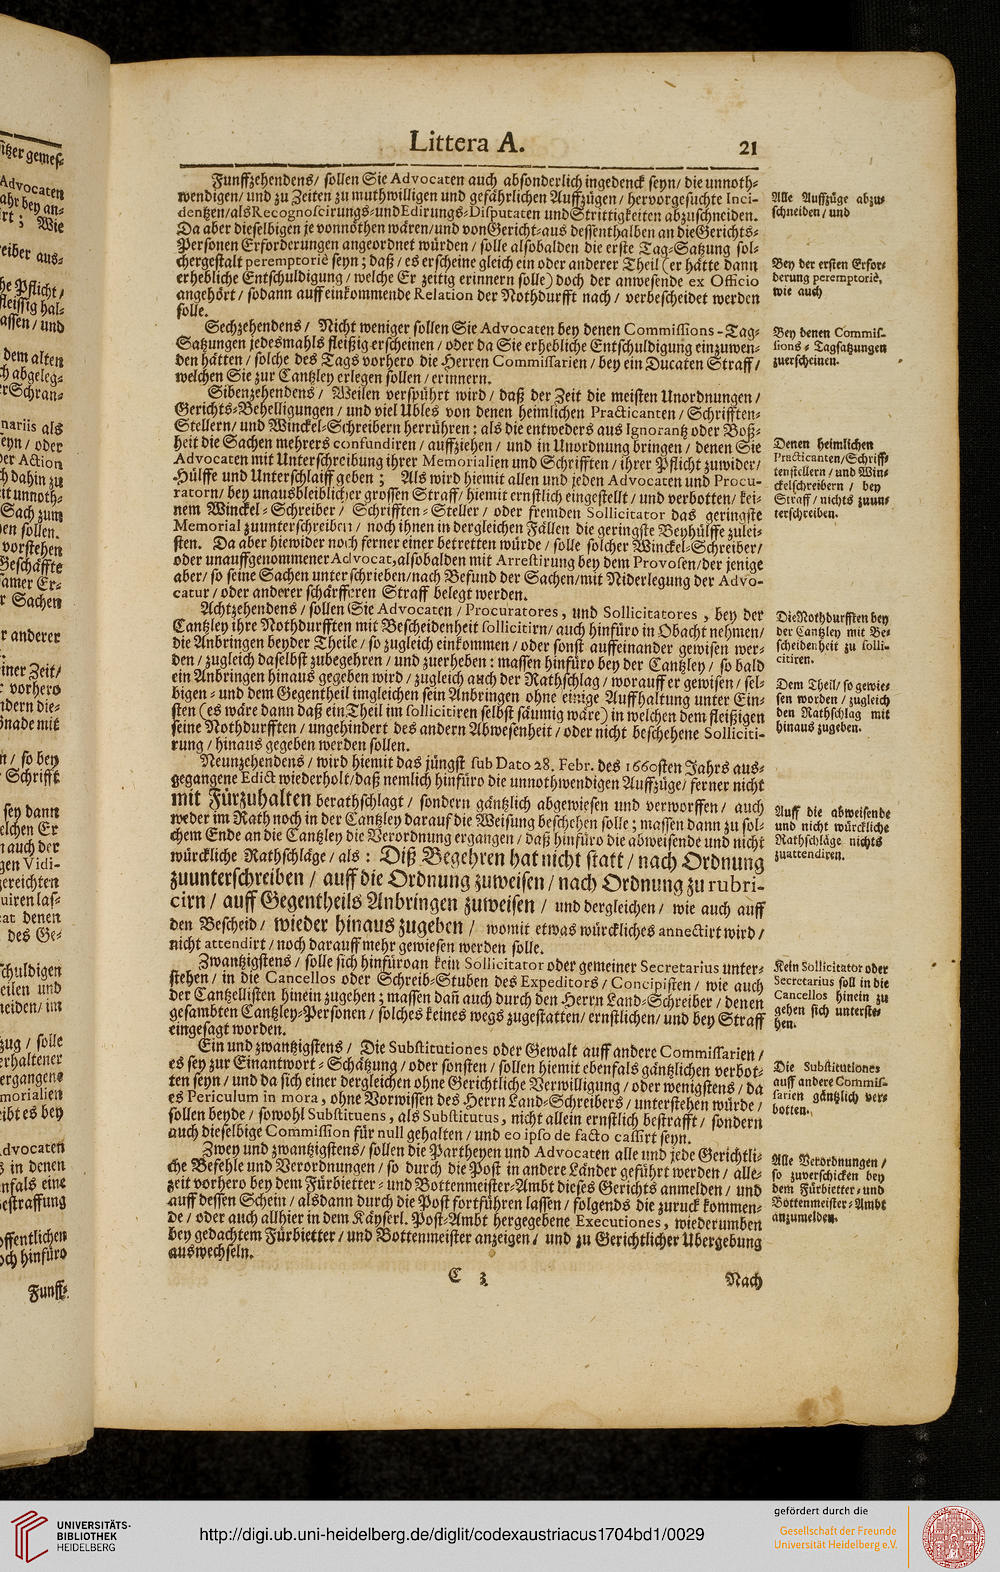 Littera A.
21
Funffzehendens/ sollen Sie Advocaten auch absonderlich ingedenck seyn/ die unnoth-
wendigen/ und zu Zeiten zu muthwilligen und gefährlichen Auffzügen/ hervorgesuchte Inci-
dentzen/als Recognoscirungs- und Edirungs-Disputaten und Strittigkeiten abzuschneiden.
Da aber dieselbigen je vonnöthen wären/und von Gericht-aus dessenthalben an die Gerichts-
Personen Erforderungen angeordnet würden/ solle alsobalden die erste Tag-Satzung sol-
chergestalt peremptoriè seyn; daß/ es erscheine gleich ein oder anderer Theil (er hätte dann
erhebliche Entschuldigung/ welche Er zeitig erinnern solle) doch der anwesende ex Officio
angehört/ sodann auff einkommende Relation der Nothdurfft nach/ verbescheidet werden
solle.
Sechzehendens/ Nicht weniger sollen Sie Advocaten bey denen Commissions-Tag-
Satzungen jedesmahls fleißig erscheinen/ oder da Sie erhebliche Entschuldigung einzuwen-
den hätten/ solche des Tags vorhero die Herren Commissarien/ bey ein Ducaten Straff/
welchen Sie zur Cantzley erlegen sollen/ erinnern.
Sibenzehendens/ Weilen verspührt wird/ daß der Zeit die meisten Unordnungen/
Gerichts-Behelligungen/ und viel Ubles von denen heimlichen Practicanten/ Schrifften-
Stellern/ und Winckel-Schreibern herrühren: als die entweders aus Ignorantz oder Boß-
heit die Sachen mehrers confundiren/ auffziehen/ und in Unordnung bringen/ denen Sie
Advocaten mit Unterschreibung ihrer Memorialien und Schrifften/ ihrer Pflicht zuwider/
Hülffe und Unterschlaiff geben; Als wird hiemit allen und jeden Advocaten und Procu-
ratorn/ bey unausbleiblicher grossen Straff/ hiemit ernstlich eingestellt/ und verbotten/ kei-
nem Winckel-Schreiber/ Schrifften-Steller/ oder fremden Sollicitator das geringste
Memorial zuunterschreiben/ noch ihnen in dergleichen Fällen die geringste Beyhülffe zulei-
sten. Da aber hiewider noch ferner einer betretten würde/ solle solcher Winckel-Schreiber/
oder unauffgenommener Advocat, alsobalden mit Arrestirung bey dem Provosen/der jenige
aber/ so seine Sachen unterschrieben/nach Befund der Sachen/mit Niderlegung der Advo-
catur/ oder anderer schärfferen Straff belegt werden.
Achtzehendens/ sollen Sie Advocaten/ Procuratores, und Sollicitatores, bey der
Cantzley ihre Nothdurfften mit Bescheidenheit sollicitirn/ auch hinfüro in Obacht nehmen/
die Anbringen beyder Theile/ so zugleich einkommen/ oder sonst auffeinander gewisen wer-
den/ zugleich daselbst zubegehren/ und zuerheben: massen hinfüro bey der Cantzley/ so bald
ein Anbringen hinaus gegeben wird/ zugleich auch der Rathschlag/ worauff er gewisen/ sel-
bigen- und dem Gegentheil imgleichen sein Anbringen ohne einige Auffhaltung unter Ein-
sten (es wäre dann daß ein Theil im sollicitiren selbst säumig wäre) in welchen dem fleißigen
seine Nothdurfften/ ungehindert des andern Abwesenheit/ oder nicht beschehene Solliciti-
rung/ hinaus gegeben werden sollen.
Neunzehendens/ wird hiemit das jüngst sub Dato 28. Febr. des 1660sten Jahrs aus-
gegangene Edict wiederholt/daß nemlich hinfüro die unnothwendigen Auffzüge/ ferner nicht
mit Fürzuhalten berathschlagt/ sondern gäntzlich abgewiesen und verworffen/ auch
weder im Rath noch in der Cantzley darauf die Weisung beschehen solle; massen dann zu sol-
chem Ende an die Cantzley die Verordnung ergangen/ daß hinfüro die abweisende und nicht
würckliche Rathschläge/ als: Diß Begehren hat nicht statt/ nach Ordnung
zuunterschreiben/ auff die Ordnung zuweisen/ nach Ordnung zu rubri-
cirn/ auff Gegentheils Anbringen zuweisen/ und dergleichen/ wie auch auff
den Bescheid/ wieder hinaus zugeben/ womit etwas würckliches annectirt wird/
nicht attendirt/ noch darauff mehr gewiesen werden solle.
Zwantzigstens/ solle sich hinfüroan kein Sollicitator oder gemeiner Secretarius unter-
stehen/ in die Cancellos oder Schreib-Stuben des Expeditors/ Concipisten/ wie auch
der Cantzellisten hinein zugehen; massen dañ auch durch den Herrn Land-Schreiber/ denen
gesambten Cantzley-Personen/ solches keines wegs zugestatten/ ernstlichen/ und bey Straff
eingesagt worden.
Ein und zwantzigstens/ Die Substitutiones oder Gewalt auff andere Commissarien/
es sey zur Einantwort-Schätzung/ oder sonsten/ sollen hiemit ebenfals gäntzlichen verbot-
ten seyn/ und da sich einer dergleichen ohne Gerichtliche Verwilligung/ oder wenigstens/ da
es Periculum in mora, ohne Vorwissen des Herrn Land-Schreibers/ unterstehen würde/
sollen beyde/ sowohl Substituens, als Substitutus, nicht allein ernstlich bestrafft/ sondern
auch dieselbige Commission für null gehalten/ und eo ipso de facto cassirt seyn.
Zwey und zwantzigstens/ sollen die Partheyen und Advocaten alle und jede Gerichtli-
che Befehle und Verordnungen/ so durch die Post in andere Länder geführt werden/ alle-
zeit vorhero bey dem Fürbietter- und Bottenmeister-Ambt dieses Gerichts anmelden/ und
auff dessen Schein/ alsdann durch die Post fortführen lassen/ folgends die zuruck kommen-
de/ oder auch allhier in dem Käyserl. Post-Ambt hergegebene Executiones, wiederumben
bey gedachtem Fürbietter/ und Bottenmeister anzeigen/ und zu Gerichtlicher Ubergebung
auswechseln.
C 3
Nach
Alle Auffzüge abzu-
schneiden/ und
Bey der ersten Erfor-
derung peremptoriè,
wie auch
Bey denen Commis-
sions-Tagsatzungen
zuerscheinen.
Denen heimlichen
Practicanten/Schriff-
tenstellern/ und Win-
ckelschreibern/ bey
Straff/ nichts zuun-
terschreiben.
Die Nothdurfften bey
der Cantzley mit Be-
scheidenheit zu solli-
citiren.
Dem Theil/ so gewie-
sen worden/ zugleich
den Rathschlag mit
hinaus zugeben.
Auff die abweisende
und nicht würckliche
Rathschläge nichts
zuattendiren.
Kein Sollicitator oder
Secretarius soll in die
Cancellos hinein zu
gehen sich unterste-
hen.
Die Substitutiones
auff andere Commis-
sarien gäntzlich ver-
botten.
Alle Verordnungen/
so zuverschicken bey
dem Fürbietter- und
Bottenmeister-Ambt
anzumelden.
UNIVERSITÄTS-
BIBLIOTHEK
HEIDELBERG
http://digi.ub.uni-heidelberg.de/diglit/codexaustriacus1704bd1/0029
gefördert durch die
Gesellschaft der Freunde
Universität Heidelberg e.V.